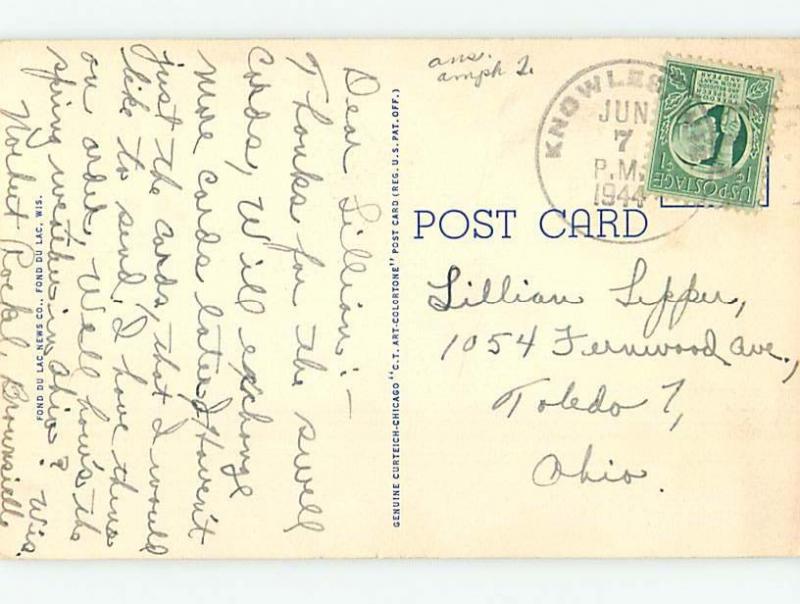 Dear Lillian:—
Thanks for the swell
cards, Will exchange
more cards later I Haven't
just the cards, that I would
like to send. I have them
on order, Well how's the
spring weather in Ohio?
Norbert Brownsville Wis.
FOND DU LAC NEWS CO., FOND DU LAC, WIS.
GENUINE CURTEICH-CHICAGO "C.T. ART-COLORTONE" POST CARD (REG. U.S. PAT. OFF.)
ans.
amph 2.
KNOWLES
JUN
7
P.M.
1944
INDUSTRY AGRICULTURE
FOR DEFENSE
U.S. POSTAGE
1¢ 1
POST CARD
Lillian
1054 Fernwood Ave.,
Toledo 7,
Ohio.